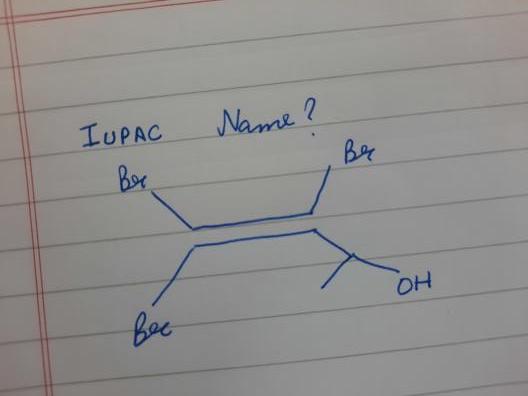 IUPAC Name?
Br Br
Br OH